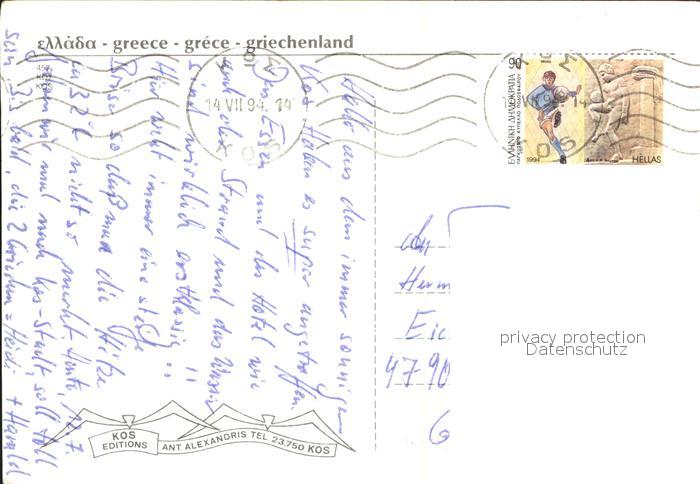 ελλάδα - greece - gréce - griechenland
457
KOS
KOS
14 VII 94. 14
ΚΩΣ
KOS
90
ΕΛΛΗΝΙΚΗ ΔΗΜΟΚΡΑΤΙΑ
ΠΑΓΚΟΣΜΙΟ ΚΥΠΕΛΛΟ ΠΟΔΟΣΦΑΙΡΟΥ
1994
HELLAS
Hallo aus dem immer sonnigen
Kos. Haben es super angetroffen.
Das Essen und das Hotel wie
auch der Strand und das Wasser
sind wirklich erstklassig !!
Hier weht immer eine steife
Brise, so daß man die Hitze
ca 32° nicht so merkt. Heute, 12.7.
mal nach Kos-Stadt, soll toll
sein. Bis bald, die 2 Griechen = Heidi + Harald
An
Herrn
Eic
4790
6
privacy protection
Datenschutz
KOS
EDITIONS
ANT ALEXANDRIS TEL 23.750 KOS